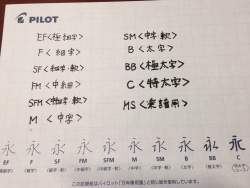 PILOT
EF<極細字>
F<細字>
SF<細字・軟>
FM<中細>
SFM<中細字・軟>
M<中字>
SM<中字・軟>
B<太字>
BB<極太字>
C<特太字>
MS<楽譜用>
永 永 永 永 永 永 永 永 永 永
EF F SF FM SFM SM M B BB C